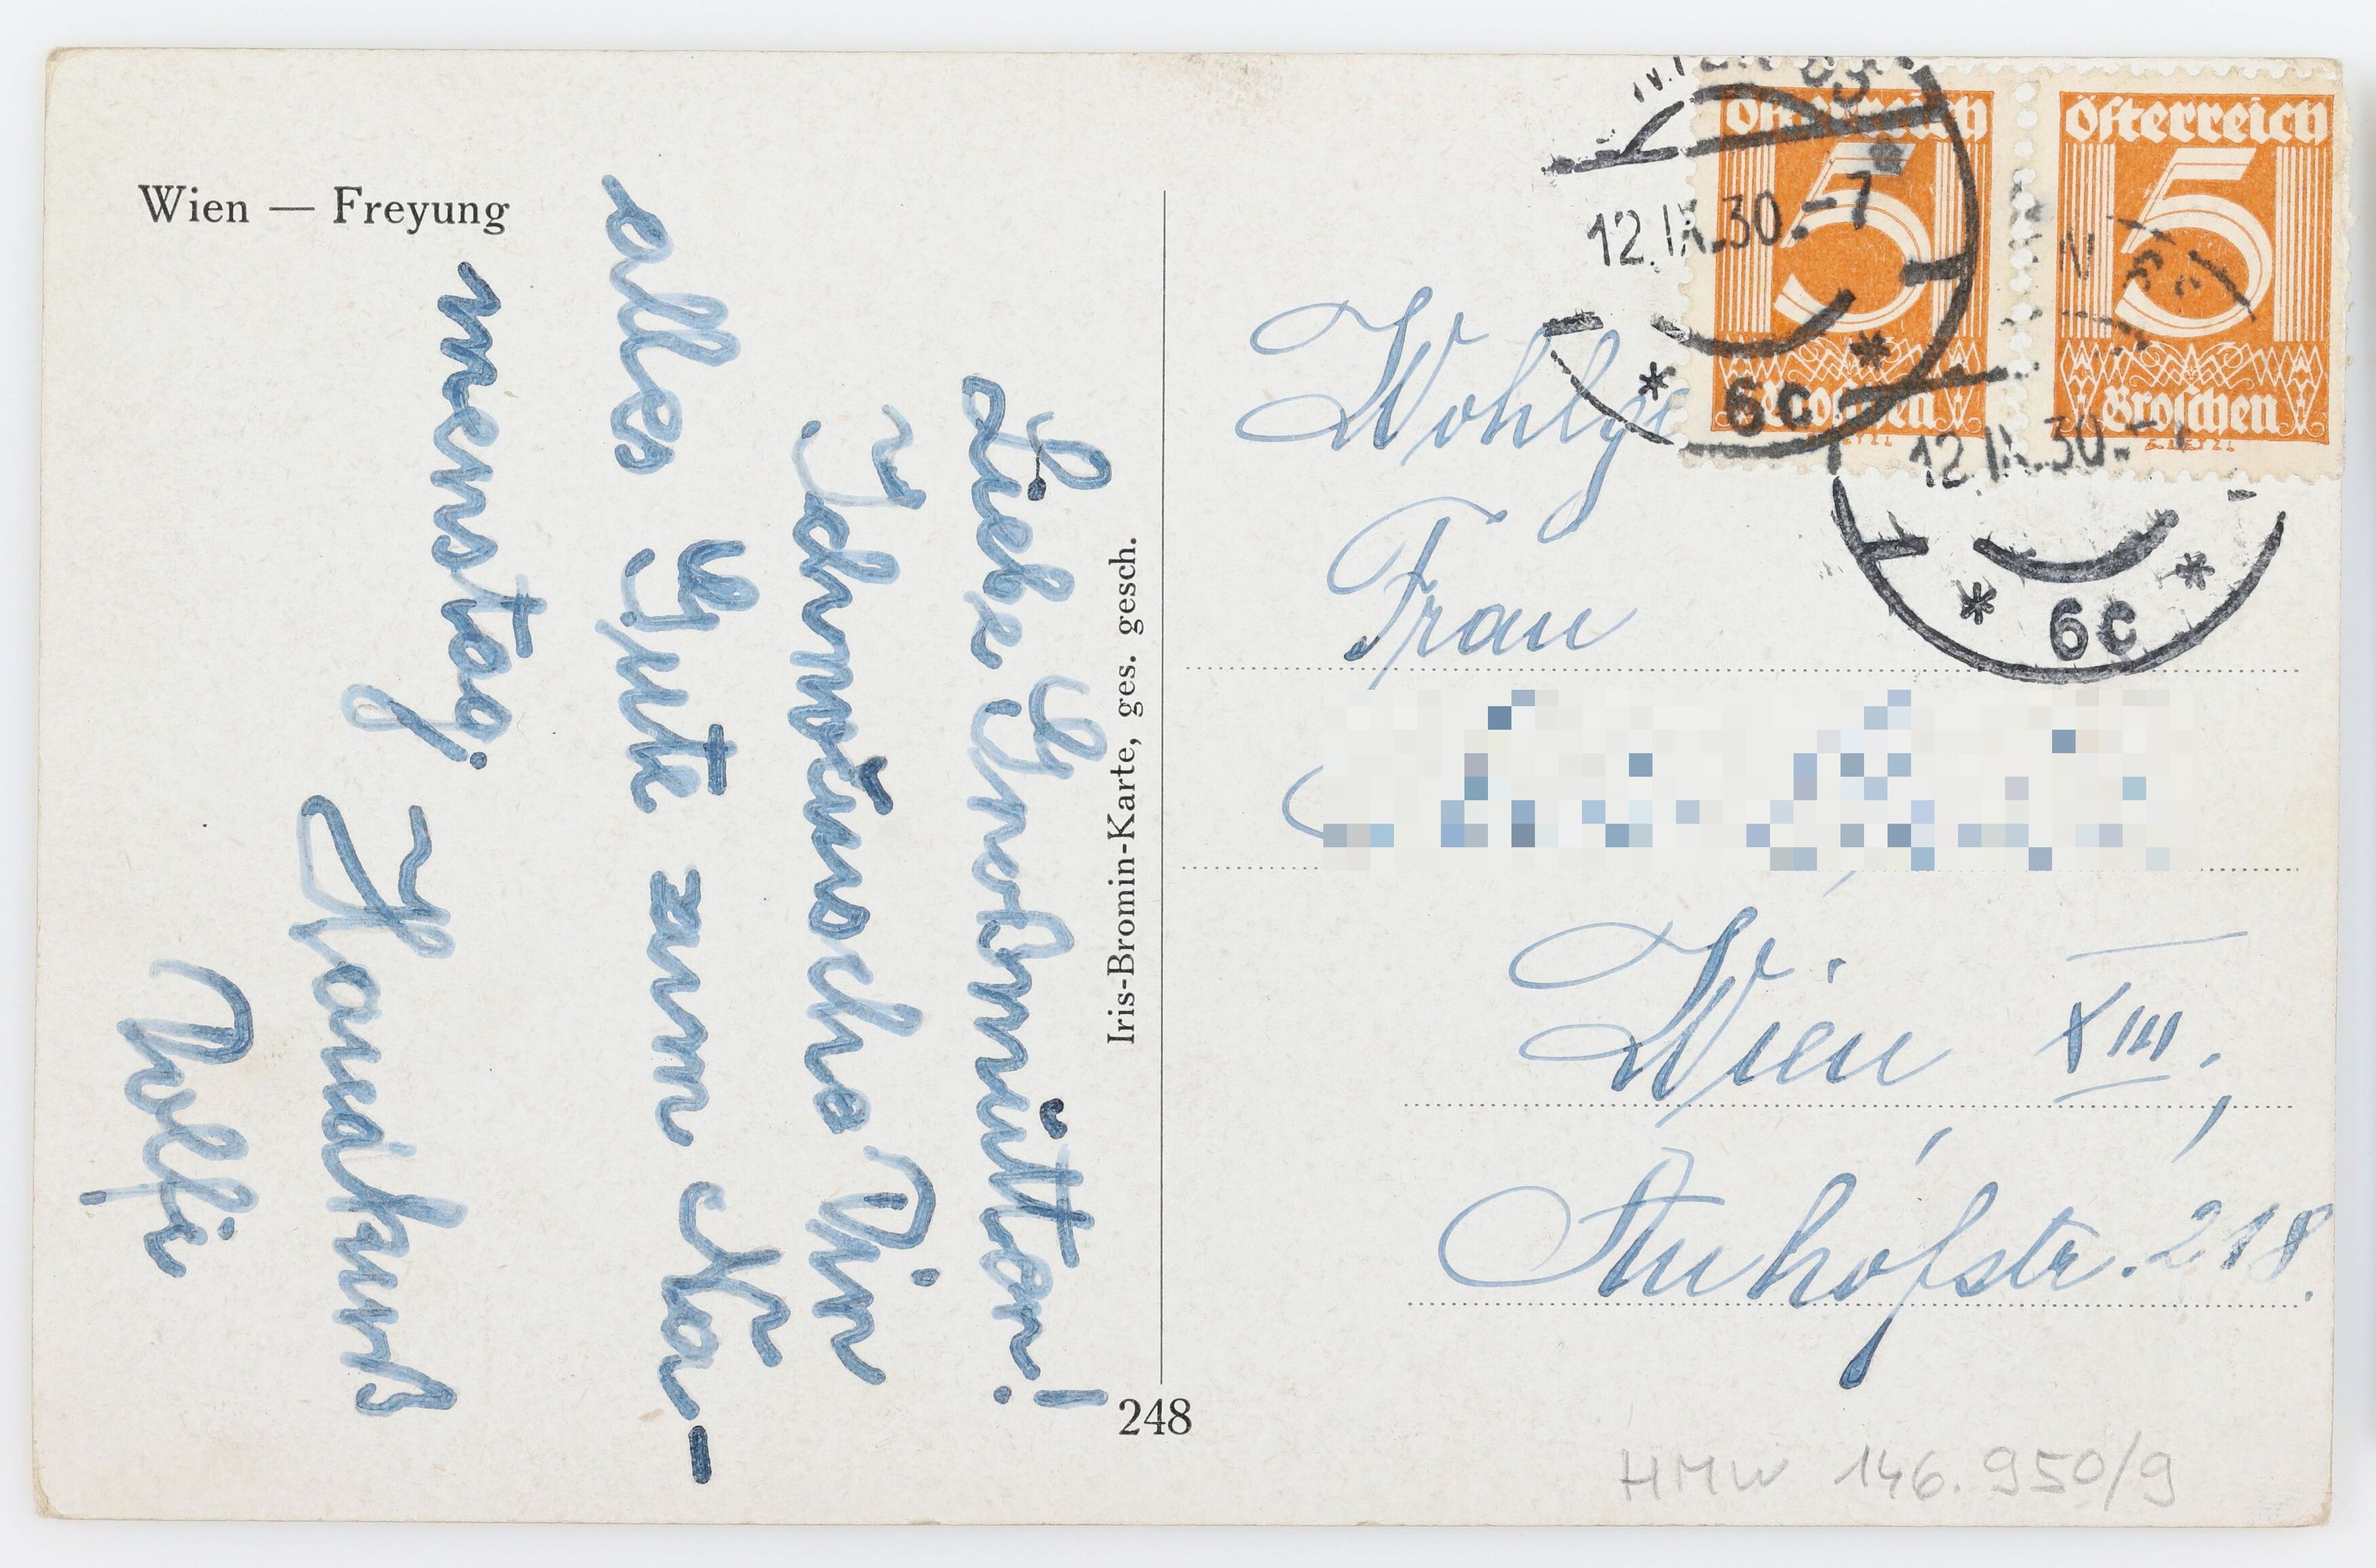 Wien — Freyung
Liebe Großmutter!
Ich wünsche Dir
alles Gute zum Na-
menstag.
Handkuß
Wolfi
Iris-Bromin-Karte, ges. gesch.
248
Österreich
5
Groschen
Österreich
5
Groschen
12.IX.30.-7
* 6c *
12.IX.30.-
* 6c *
Wohlge
Frau
Wien XIII,
Auhofstr. 218.
HMW 146.950/9